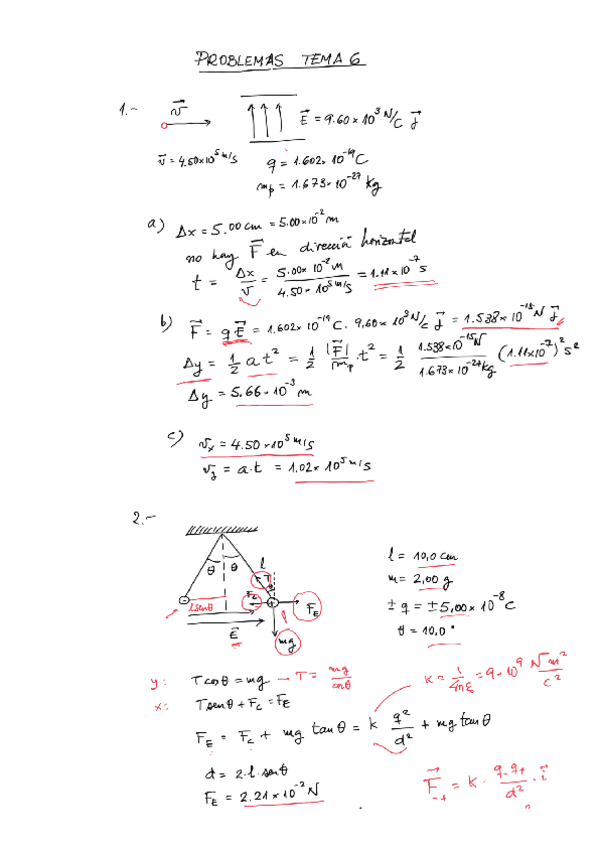 PROBLEMAS TEMA 6
1.-
v⃗
E⃗ = 9.60×10³ N/C j⃗
v⃗ = 4.50×10⁵ m/s
q = 1.602×10⁻¹⁹ C
mp = 1.673×10⁻²⁷ kg
a) Δx = 5.00 cm = 5.00×10⁻² m
no hay F⃗ en dirección horizontal
t = Δx/v = 5.00×10⁻² m / 4.50×10⁵ m/s = 1.11×10⁻⁷ s
b) F⃗ = qE⃗ = 1.602×10⁻¹⁹ C · 9.60×10³ N/C j⃗ = 1.538×10⁻¹⁵ N j⃗
Δy = 1/2 a t² = 1/2 |F⃗|/mp · t² = 1/2 1.538×10⁻¹⁵ N / 1.673×10⁻²⁷ kg (1.11×10⁻⁷)² s²
Δy = 5.66·10⁻³ m
c) vx = 4.50×10⁵ m/s
vy = a·t = 1.02×10⁵ m/s
2.-
θ θ l
T
l senθ
Fc
FE
E⃗
mg
l = 10,0 cm
m = 2,00 g
± q = ± 5,00×10⁻⁸ C
θ = 10,0 °
y: T cosθ = mg → T = mg/cosθ
K = 1/4πξ = 9·10⁹ N m²/C²
x: T senθ + Fc = FE
FE = Fc + mg tanθ = k q²/d² + mg tanθ
d = 2·l·senθ
FE = 2.21×10⁻² N
F⃗-+ = K · q-q+/d² · i⃗